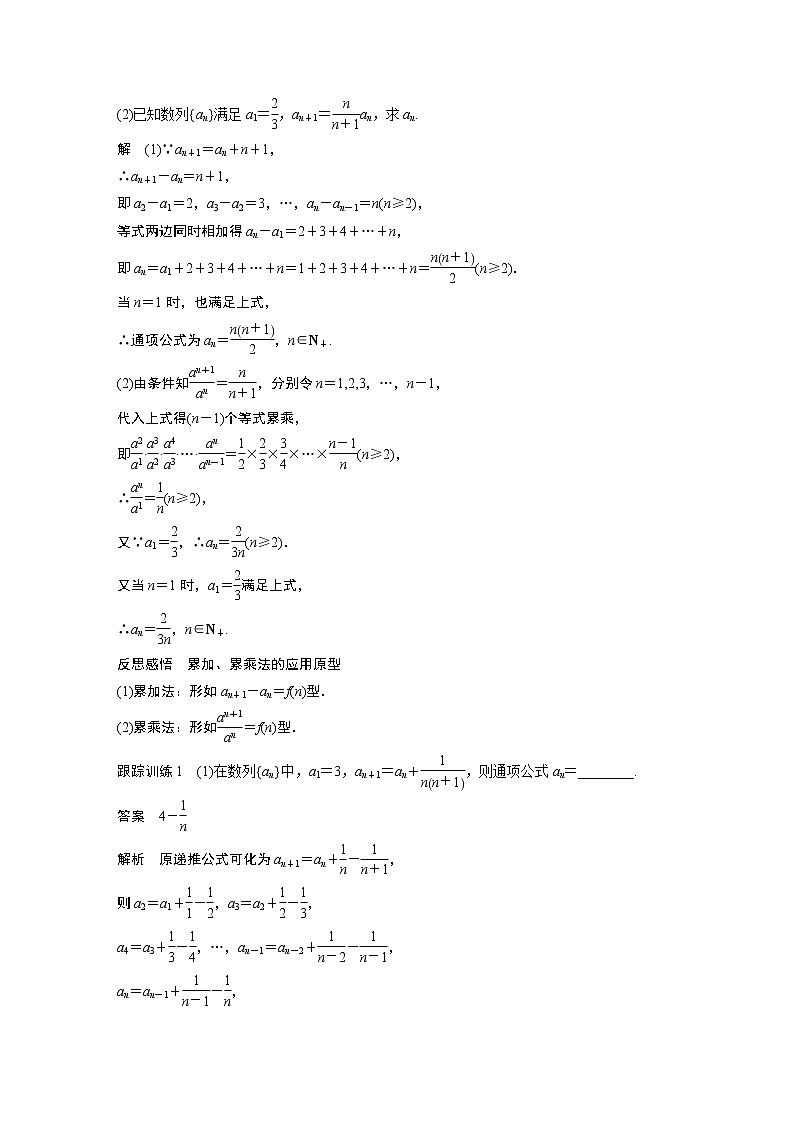 (2)已知数列{aₙ}满足 a₁＝2/3，aₙ₊₁＝n/(n＋1)aₙ，求 aₙ.
解　(1)∵aₙ₊₁＝aₙ＋n＋1，
∴aₙ₊₁－aₙ＝n＋1，
即 a₂－a₁＝2，a₃－a₂＝3，…，aₙ－aₙ₋₁＝n(n≥2)，
等式两边同时相加得 aₙ－a₁＝2＋3＋4＋…＋n，
即 aₙ＝a₁＋2＋3＋4＋…＋n＝1＋2＋3＋4＋…＋n＝n(n＋1)/2(n≥2).
当 n＝1 时，也满足上式，
∴通项公式为 aₙ＝n(n＋1)/2，n∈N₊.
(2)由条件知aⁿ⁺¹/aⁿ＝n/(n＋1)，分别令 n＝1,2,3，…，n－1，
代入上式得(n－1)个等式累乘，
即a²/a¹·a³/a²·a⁴/a³·…·aⁿ/aⁿ⁻¹＝1/2×2/3×3/4×…×(n－1)/n(n≥2)，
∴aⁿ/a¹＝1/n(n≥2)，
又∵a₁＝2/3，∴aₙ＝2/3n(n≥2).
又当 n＝1 时，a₁＝2/3满足上式，
∴aₙ＝2/3n，n∈N₊.
反思感悟　累加、累乘法的应用原型
(1)累加法：形如 aₙ₊₁－aₙ＝f(n)型.
(2)累乘法：形如aⁿ⁺¹/aⁿ＝f(n)型.
跟踪训练 1　(1)在数列{aₙ}中，a₁＝3，aₙ₊₁＝aₙ＋1/n(n＋1)，则通项公式 aₙ＝________.
答案　4－1/n
解析　原递推公式可化为 aₙ₊₁＝aₙ＋1/n－1/(n＋1)，
则 a₂＝a₁＋1/1－1/2，a₃＝a₂＋1/2－1/3，
a₄＝a₃＋1/3－1/4，…，aₙ₋₁＝aₙ₋₂＋1/(n－2)－1/(n－1)，
aₙ＝aₙ₋₁＋1/(n－1)－1/n，